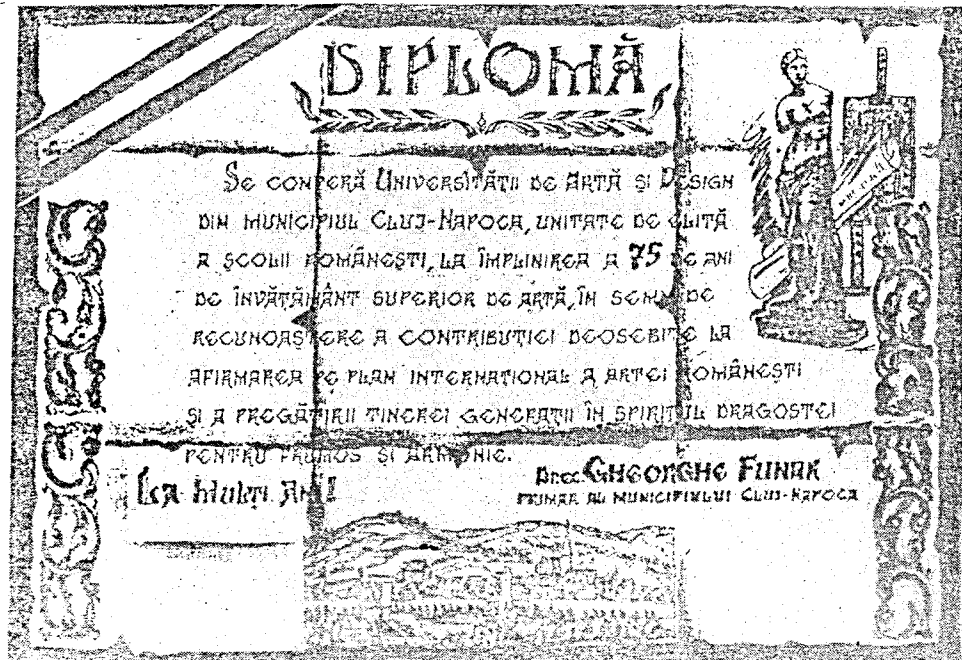 DIPLOMĂ
SE CONFERĂ UNIVERSITĂȚII DE ARTĂ ȘI DESIGN
DIN MUNICIPIUL CLUJ-NAPOCA, UNITATE DE ELITĂ
A ȘCOLII ROMÂNEȘTI, LA ÎMPLINIREA A 75 DE ANI
DE ÎNVĂȚĂMÂNT SUPERIOR DE ARTĂ, ÎN SEMN DE
RECUNOAȘTERE A CONTRIBUȚIEI DEOSEBITE LA
AFIRMAREA PE PLAN INTERNAȚIONAL A ARTEI ROMÂNEȘTI
ȘI A PREGĂTIRII TINEREI GENERAȚII ÎN SPIRITUL DRAGOSTEI
PENTRU FRUMOS ȘI ARMONIE.
LA MULȚI ANI
GHEORGHE FUNAR
PRIMAR AL MUNICIPIULUI CLUJ-NAPOCA